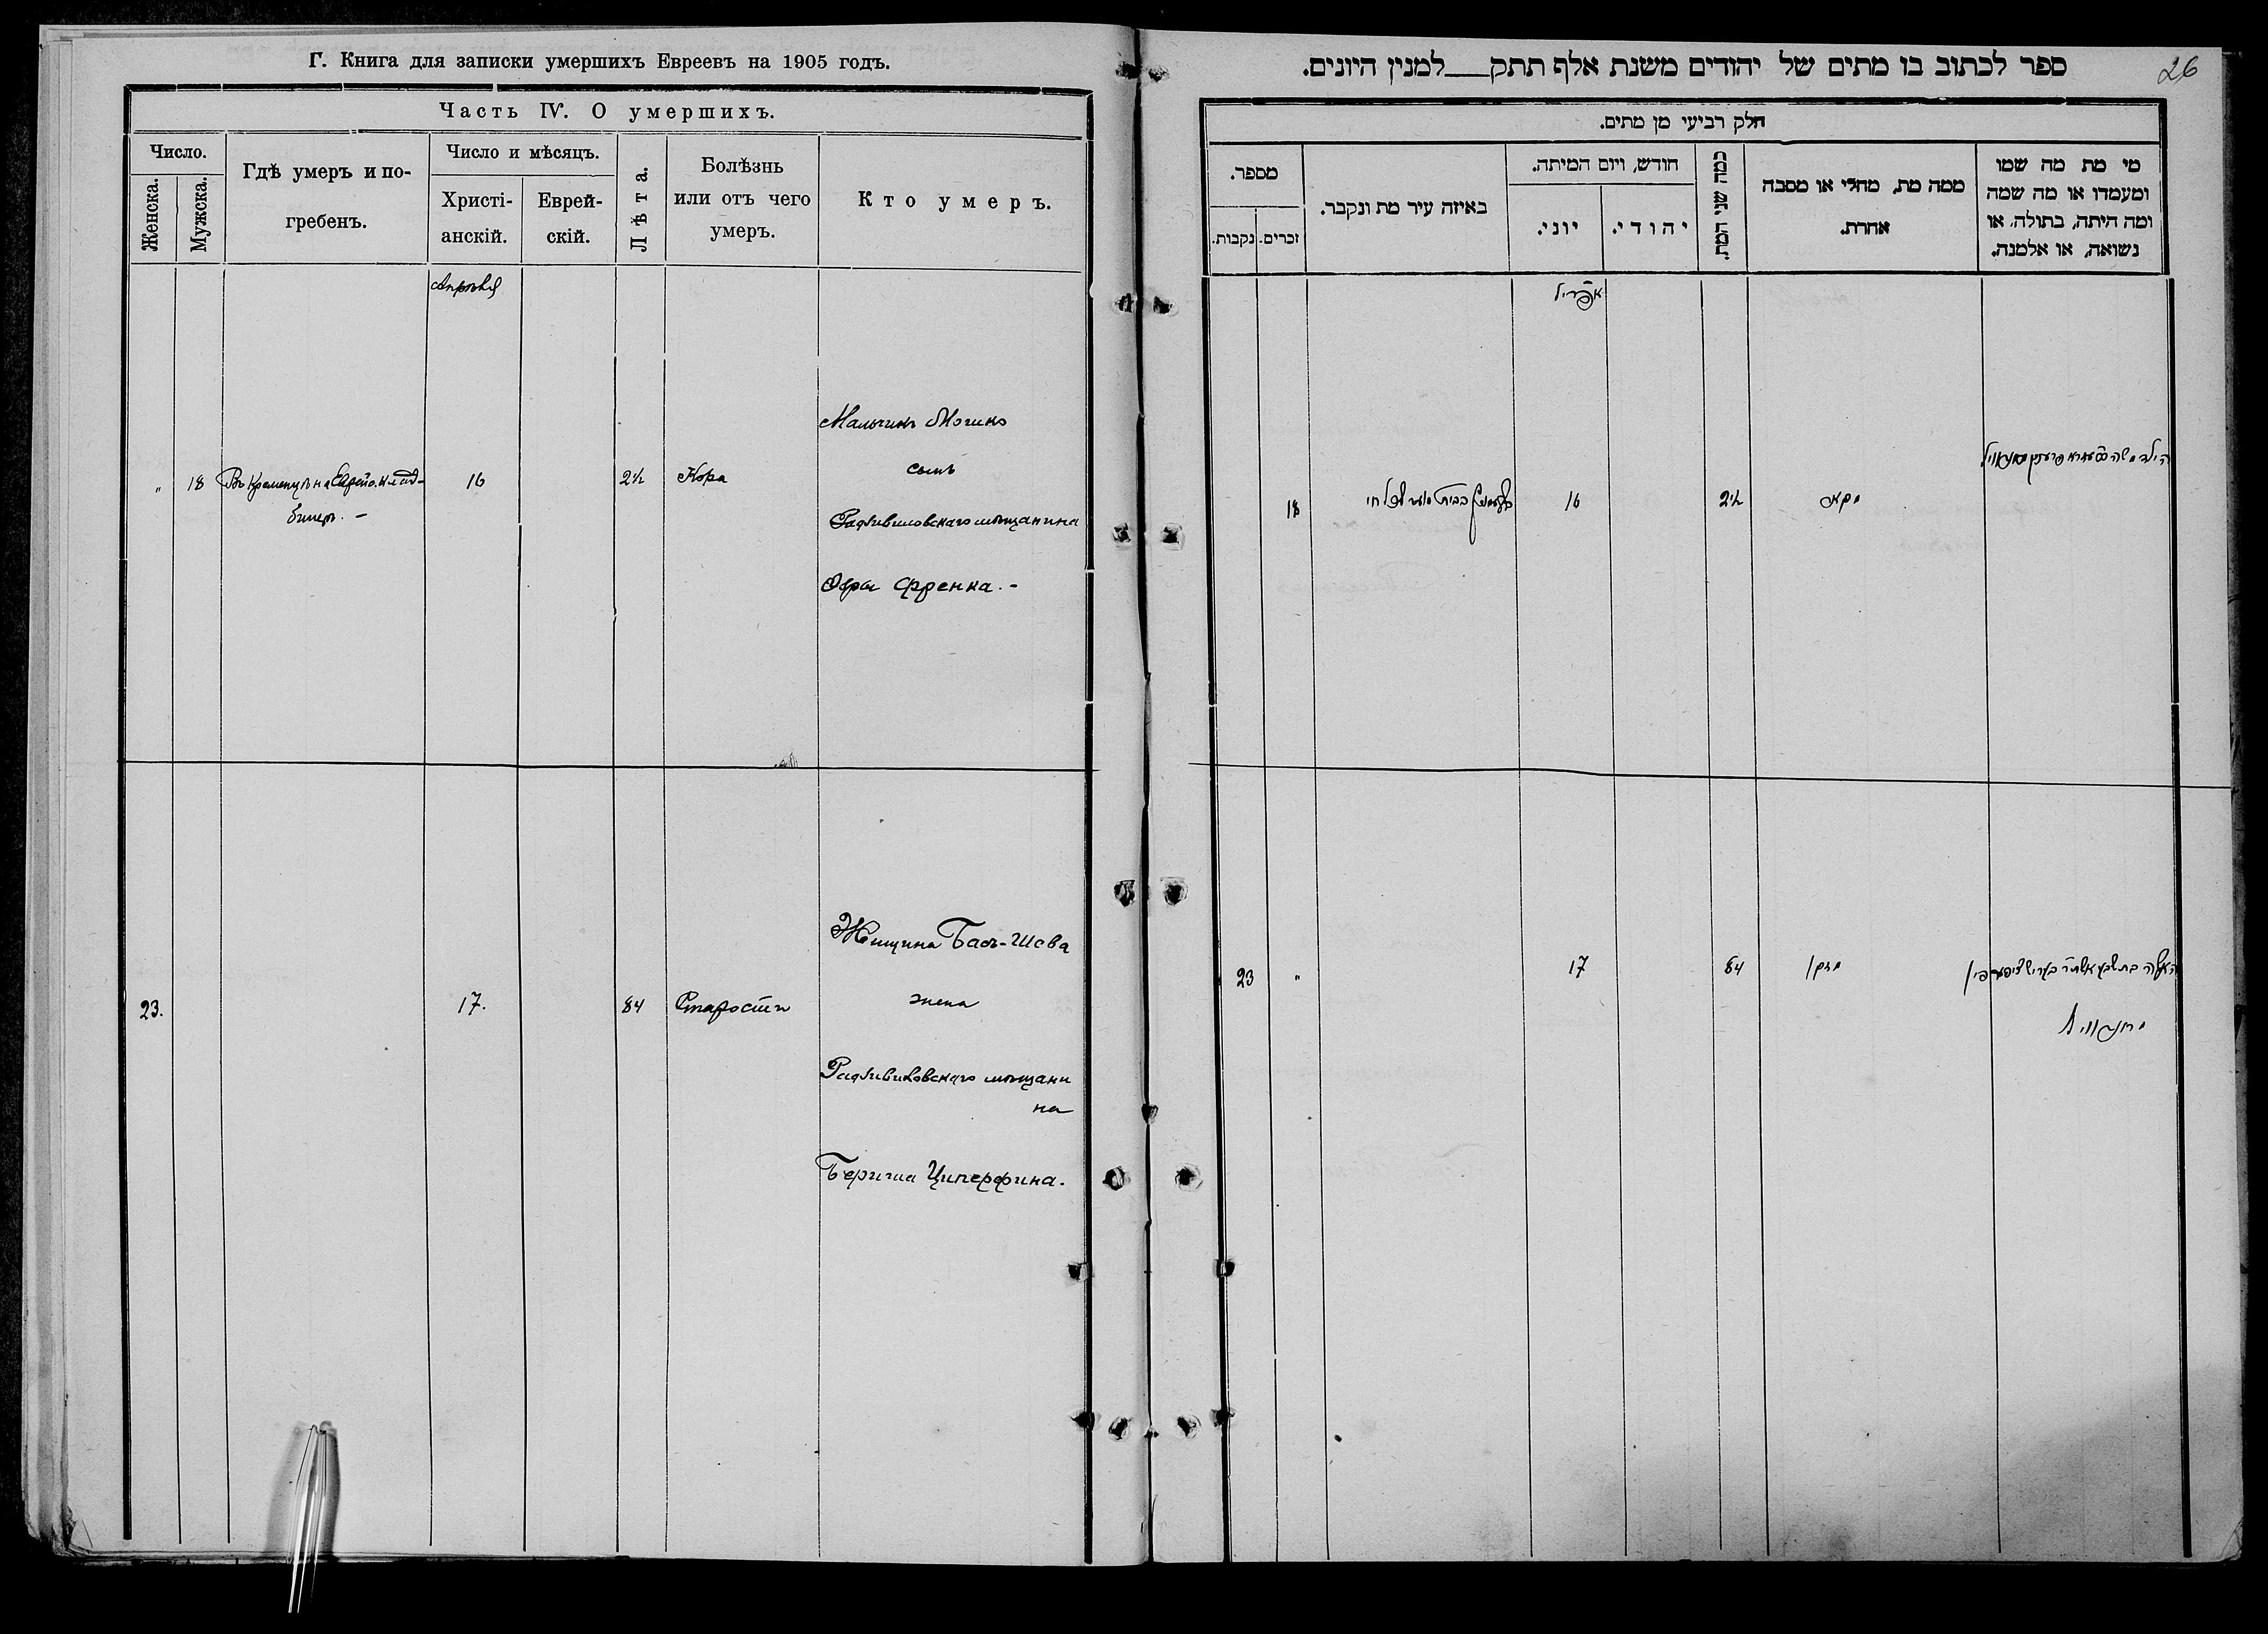 Г. Книга для записки умершихъ Евреевъ на 1905 годъ.
Часть IV. О умершихъ.
Число.
Женска.
Мужска.
Гдѣ умеръ и по-
гребенъ.
Число и мѣсяцъ.
Христі-
анскій.
Еврей-
скій.
Лѣта.
Болѣзнь
или отъ чего
умеръ.
Кто умеръ.
Апрѣль
„ 18 Въ Кременцѣ на Еврейс. клад-
бищѣ. –
16
2½
Кора
Мальчикъ
сынъ
Радзивиловскаго мѣщанина
Френка. –
23.
17.
84
Старости
Женщина Бася-Шева
жена
Радзивиловскаго мѣщани
на
Бериша Циперфина.
26
ספר לכתוב בו מתים של יהודים משנת אלף תתק למנין היונים.
חלק רביעי מן מתים.
מספר.
נקבות.
זכרים.
באיזה עיר מת ונקבר.
חודש, ויום המיתה.
יוני.
יהודי.
כמה שני המת.
ממה מת, מחלי או מסבה
אחרת.
מי מת מה שמו
ומעמדו או מה שמה
ומה היתה, בתולה, או
נשואה, או אלמנה.
אפריל
18
16
2½
23
„
17
84